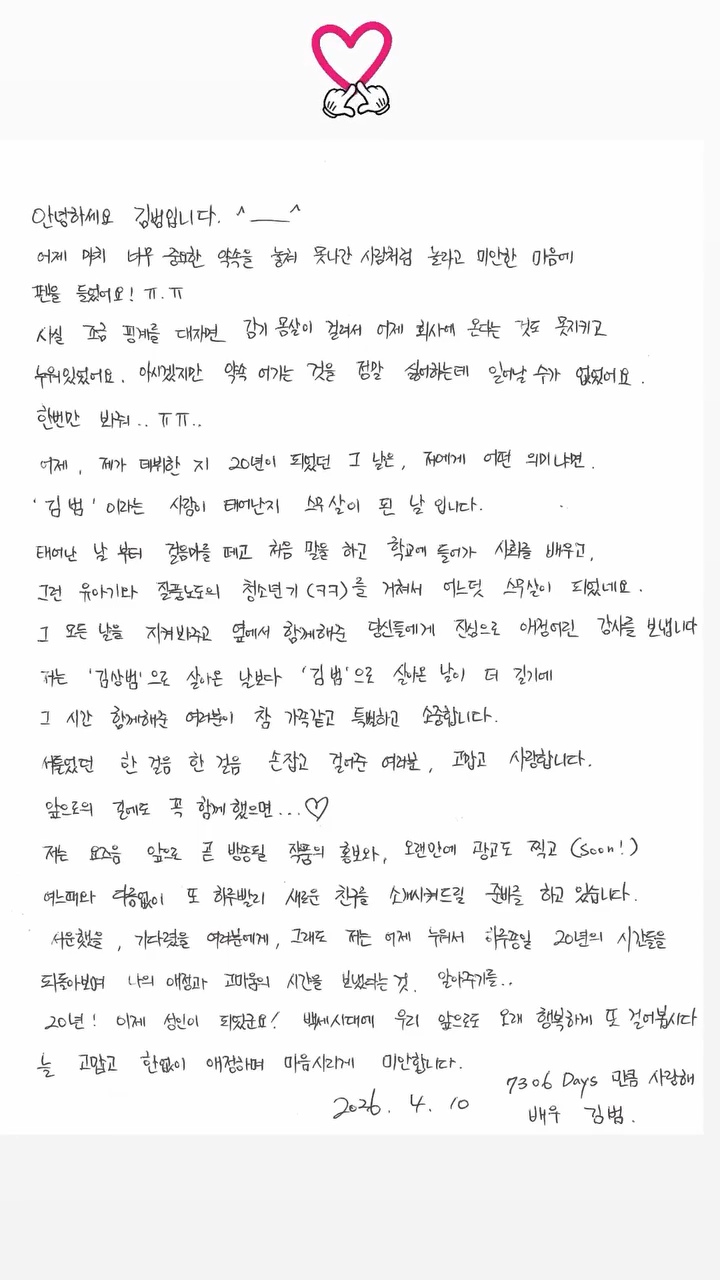 안녕하세요 김범입니다. ^___^
어제 마치 너무 중요한 약속을 놓쳐 못나간 사람처럼 놀라고 미안한 마음에
펜을 들었어요! ㅠ.ㅠ
사실 조금 핑계를 대자면 감기 몸살이 걸려서 어제 회사에 온다는 것도 못지키고
누워있었어요. 아시겠지만 약속 어기는 것을 정말 싫어하는데 일어날 수가 없었어요.
한번만 봐줘.. ㅠㅠ..
어제, 제가 데뷔한 지 20년이 되었던 그 날은, 저에게 어떤 의미냐면.
'김범' 이라는 사람이 태어난지 스무살이 된 날 입니다.
태어난 날 부터 걸음마를 떼고 처음 말을 하고 학교에 들어가 사회를 배우고,
그런 유아기와 질풍노도의 청소년기(ㅋㅋ)를 거쳐서 어느덧 스무살이 되었네요.
그 모든 날을 지켜봐주고 옆에서 함께해준 당신들에게 진심으로 애정어린 감사를 보냅니다
저는 '김상범'으로 살아온 날보다 '김범'으로 살아온 날이 더 길기에
그 시간 함께해준 여러분이 참 가족같고 특별하고 소중합니다.
서툴었던 한 걸음 한 걸음 손잡고 걸어준 여러분, 고맙고 사랑합니다.
앞으로의 길에도 꼭 함께 했으면...♡
저는 요즈음 앞으로 곧 방송될 작품의 홍보와, 오랜만에 광고도 찍고 (Soon!)
여느때와 다름없이 또 하루빨리 새로운 친구를 소개시켜드릴 준비를 하고 있습니다.
서운했을, 기다렸을 여러분에게, 그래도 저는 어제 누워서 하루종일 20년의 시간들을
되돌아보며 나의 애정과 고마움의 시간을 보냈다는 것. 알아주기를..
20년! 이제 성인이 되었군요! 백세시대에 우리 앞으로도 오래 행복하게 또 걸어봅시다
늘 고맙고 한없이 애정하며 마음시리게 미안합니다.
7306 Days 만큼 사랑해
2026. 4. 10
배우 김범.